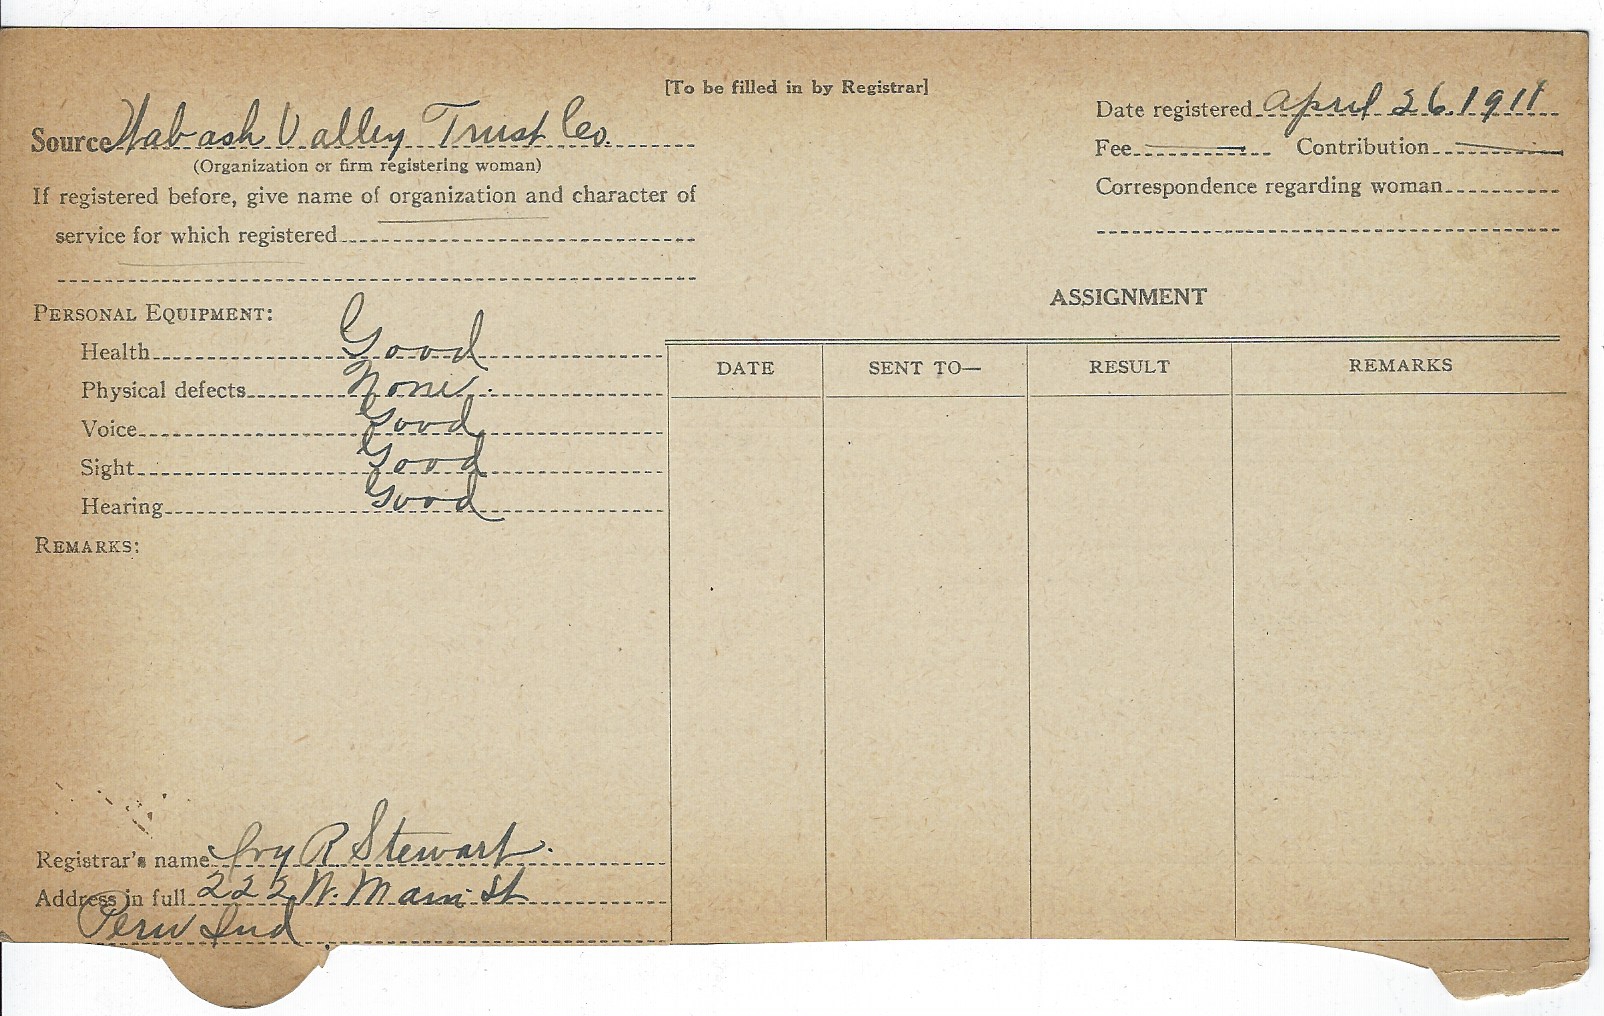 [To be filled in by Registrar]
Source Wabash Valley Trust Co.
(Organization or firm registering woman)
If registered before, give name of organization and character of
service for which registered
Date registered April 26. 1918
Fee — Contribution —
Correspondence regarding woman
PERSONAL EQUIPMENT:
Health Good
Physical defects None.
Voice Good
Sight Good
Hearing Good
REMARKS:
ASSIGNMENT
DATE SENT TO— RESULT REMARKS
Registrar's name Ivy R Stewart.
Address in full 222 W. Main St
Peru Ind